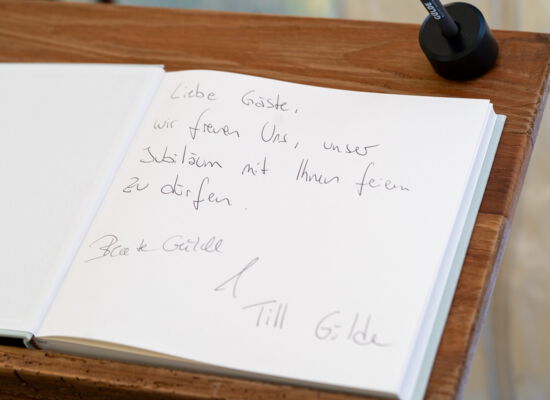 Liebe Gäste,
wir freuen Uns, unser
Jubiläum mit Ihnen feiern
zu dürfen.
Beate Gülde
Till Gülde
GÜLDE